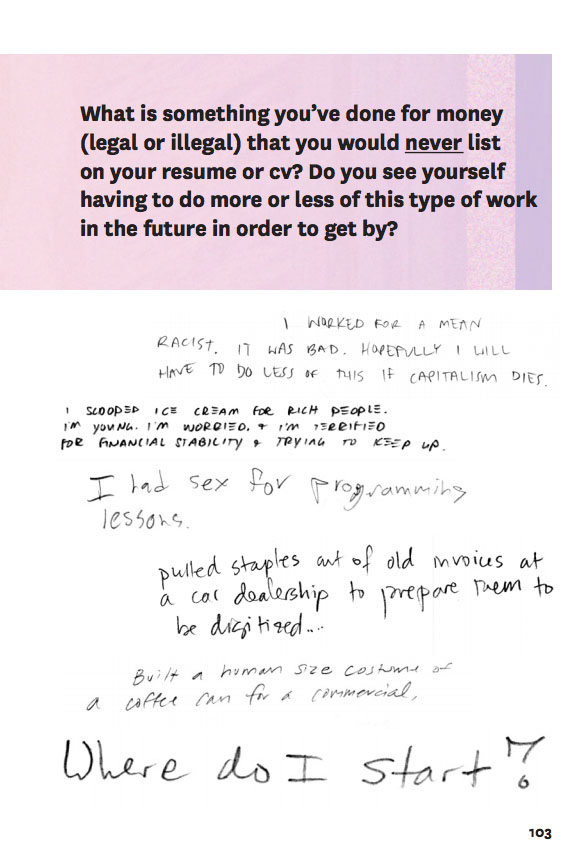 What is something you’ve done for money
(legal or illegal) that you would never list
on your resume or cv? Do you see yourself
having to do more or less of this type of work
in the future in order to get by?
I WORKED FOR A MEAN
RACIST. IT WAS BAD. HOPEFULLY I WILL
HAVE TO DO LESS OF THIS IF CAPITALISM DIES.
I SCOOPED ICE CREAM FOR RICH PEOPLE.
I'M YOUNG. I'M WORRIED. & I'M TERRIFIED
FOR FINANCIAL STABILITY & TRYING TO KEEP UP.
I had sex for programming
lessons.
pulled staples out of old invoices at
a car dealership to prepare them to
be digitized...
Built a human size costume of
a coffee can for a commercial,
Where do I start?
103